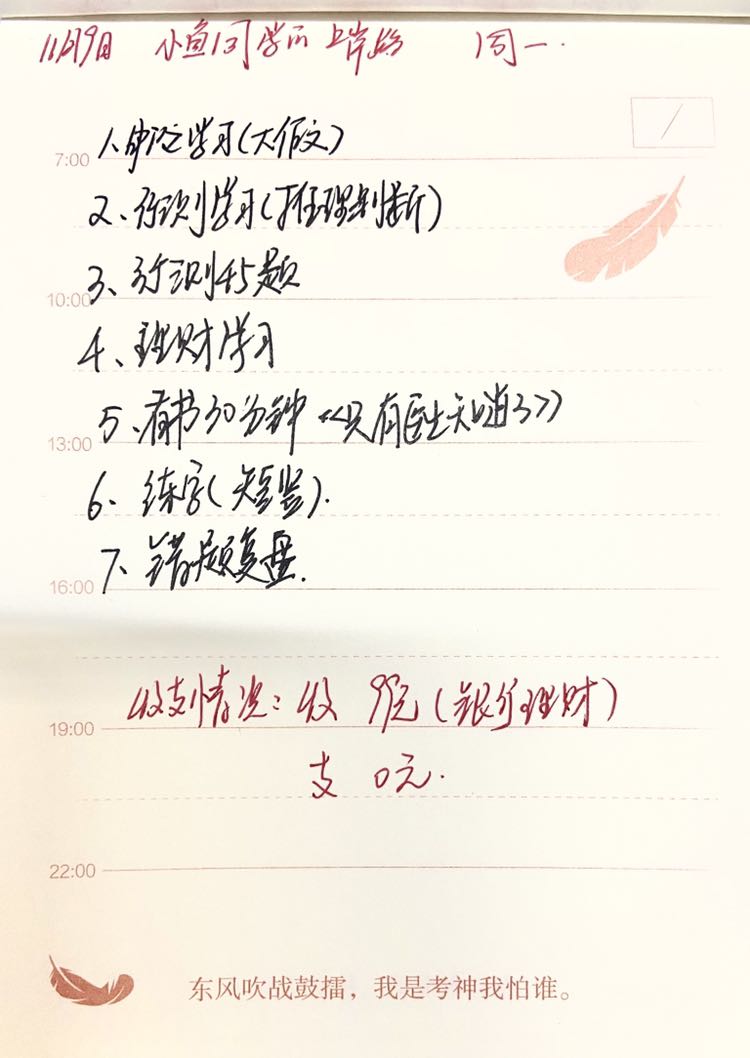 11月9日 小鱼同学的上岸路 周一.
1、申论学习(大作文)
7:00
2、行测学习(推理判断)
3、行测45题
10:00
4、理财学习
5、有书30分钟《只有医生知道3》
13:00
6、练字(短竖).
7、错题复盘.
16:00
收支情况:收 99元(银行理财)
19:00
支 0元.
22:00
东风吹战鼓擂，我是考神我怕谁。